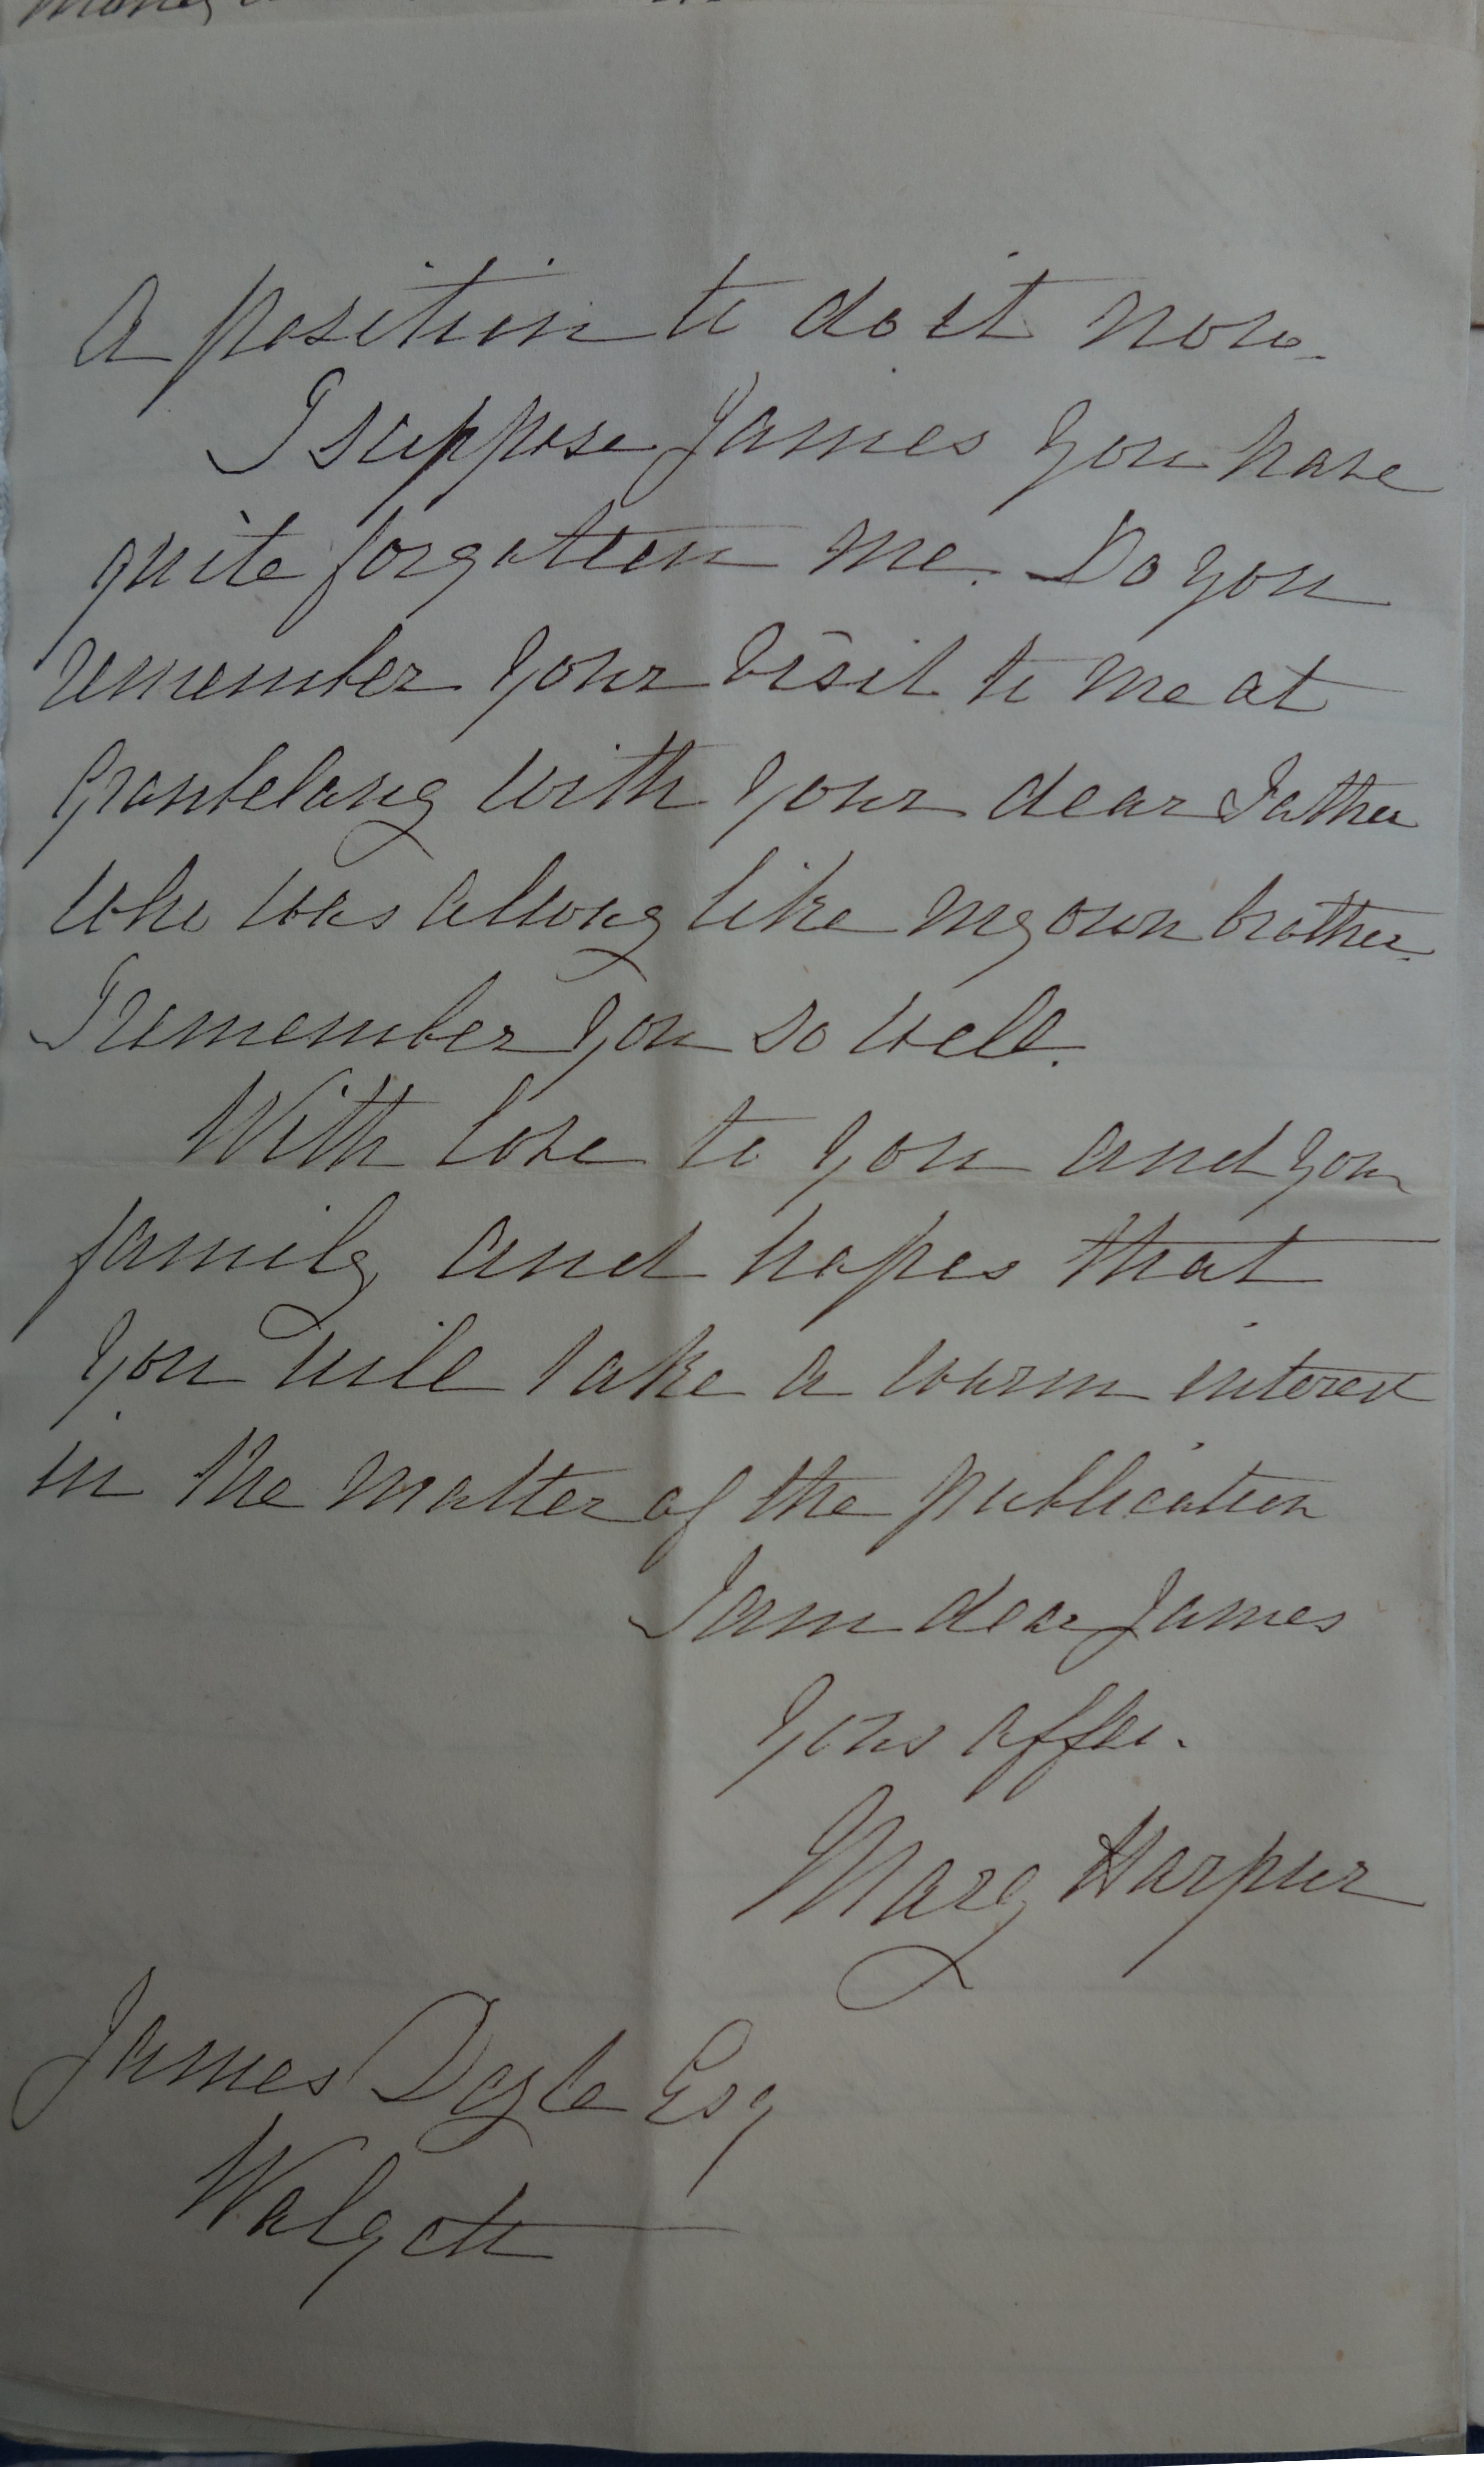 a position to do it now.
I suppose James you have
quite forgotten me. Do you
remember your visit to me at
with your dear Father
who was always like my own brother.
I remember you so well.
With love to you and your
family and hopes that
you will take a warm interest
in the matter of the publication
I am dear James
Yours affec.
Mary Harpur
James Doyle Esq
Walgett